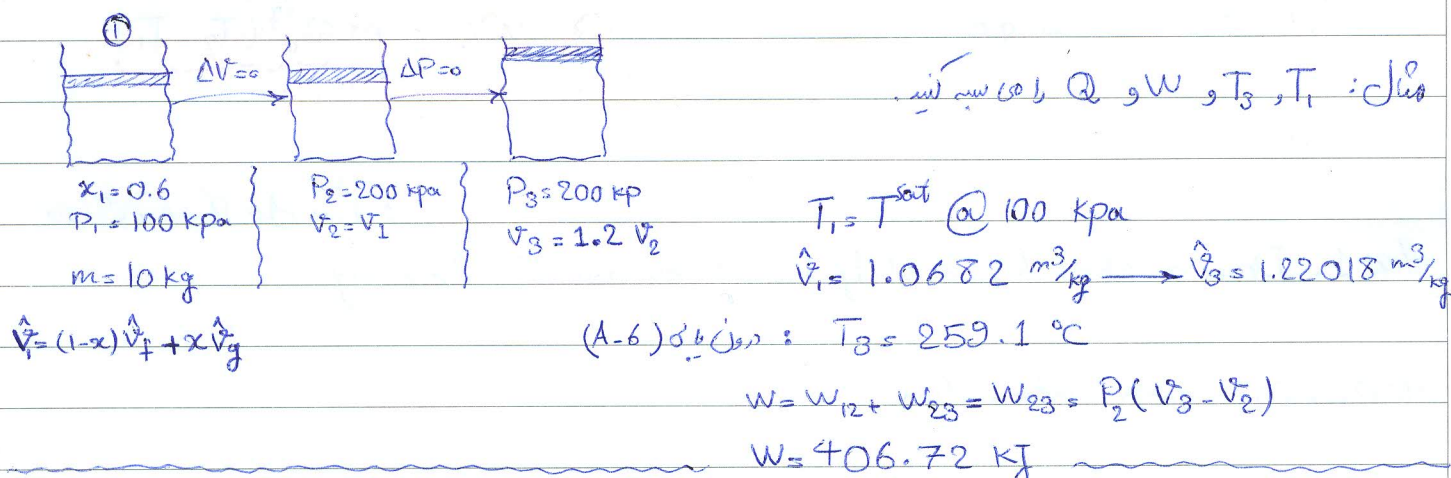 ①
ΔV=0 ΔP=0
مثال: T₁, T₃ و W و Q را محاسبه کنید.
x₁=0.6
P₁=100 kpa
m=10 kg
P₂=200 kpa
V₂=V₁
P₃=200 kp
V₃=1.2 V₂
V̂₁=(1-x)V̂f+xV̂g
T₁=Tˢᵃᵗ @ 100 kpa
V̂₁=1.0682 m³/kg → V̂₃=1.22018 m³/kg
درون یابی (A-6): T₃=259.1 °C
W=W₁₂+W₂₃=W₂₃=P₂(V₃-V₂)
W=406.72 kJ